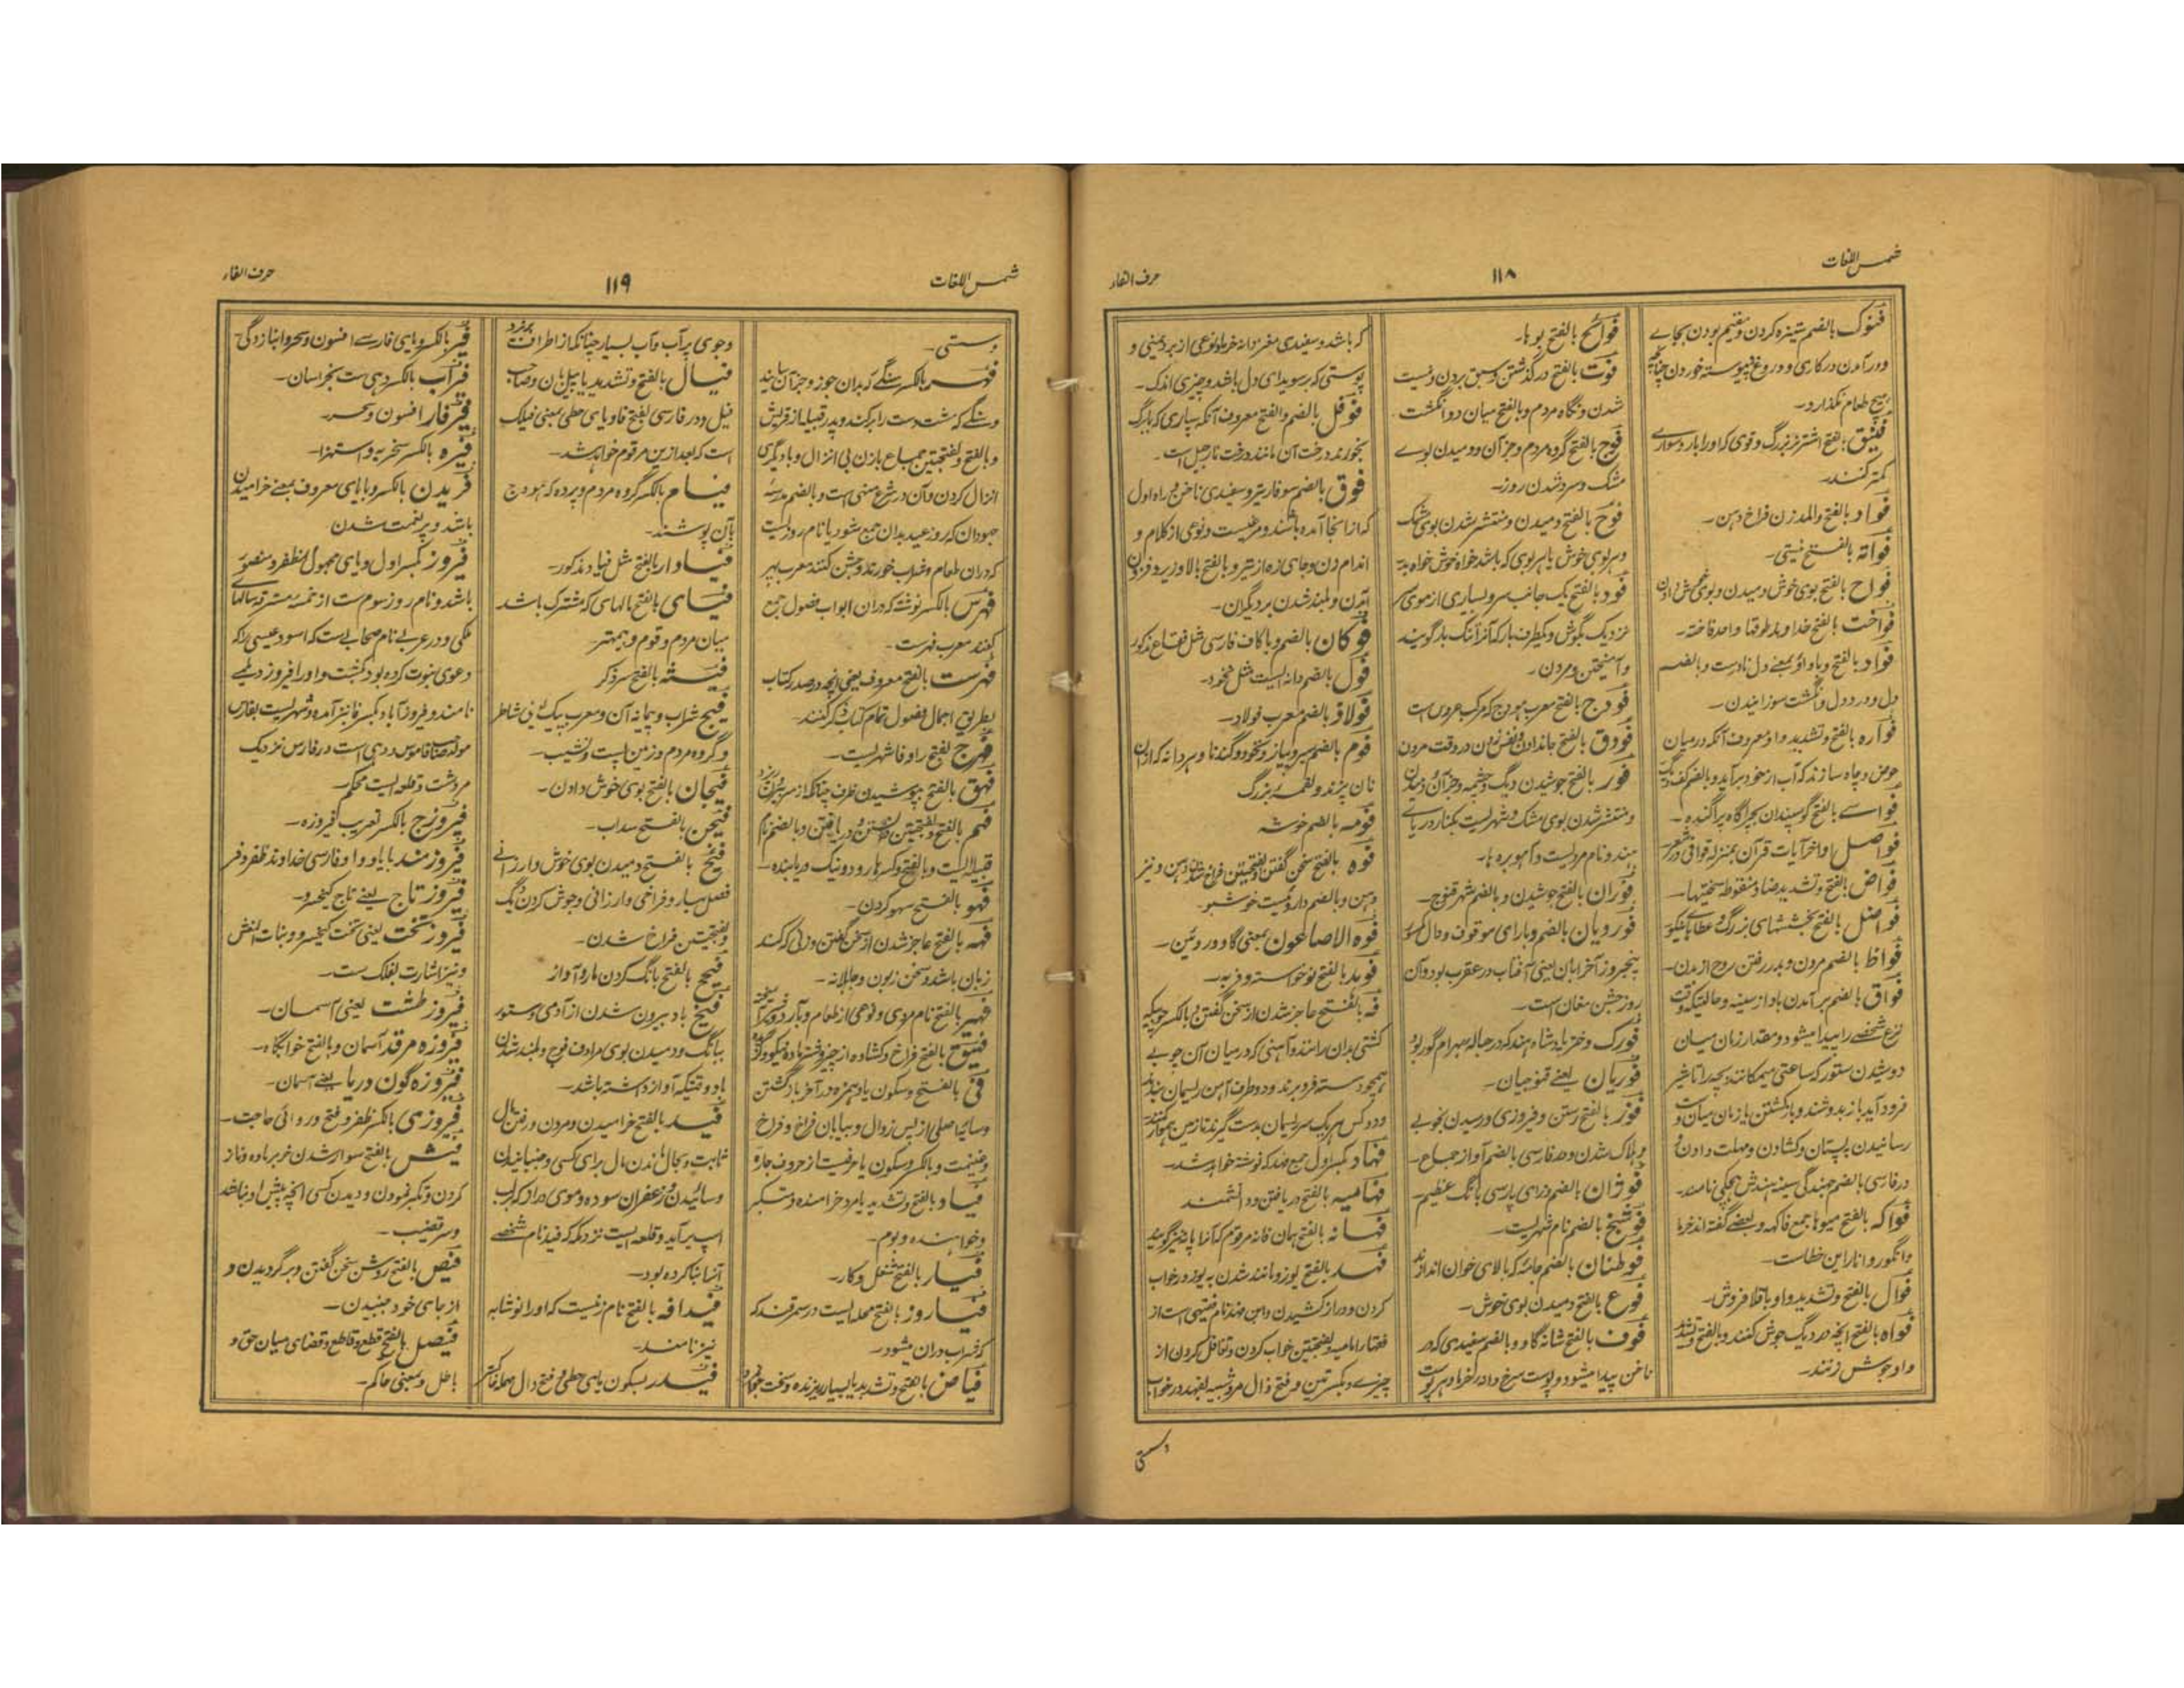 شمس اللغات
۱۱۸
حرف الفاء
فنوک بالضم ستیزه کردن و مقیم بودن بجاے
ودر آمدن در کاری و دروغ و پیوسته خوردن چنانچه
هیچ طعام نگذارد۔
فنیق بفتح اشتر نر بزرگ و قوی که او را بار و سوارے
کمتر کنند۔
فواد بالفتح والمد زن فراخ دهن۔
فواته بالفتح نیستی۔
فواح بالفتح بوی خوش دمیدن و بوی خوش دادن
فواخت بالفتح خداوند طوقها واحد فاخته۔
فواد بالفتح وباواو بمعنے دل نادرست و بالضم
دل و درد دل و انگشت سوزانیدن۔
فواره بالفتح وتشدید واو معروف آنکه درمیان
حوض و چاه سازند که آب از خود برآید و بالضم کفک دیگ
فواسے بالفتح گوسپندان بچراگاه پراگنده۔
فواصل اواخر آیات قرآن بمنزله قوافی در شعر۔
فواض بالفتح وتشدید ضاد منقوطه سختیها۔
فواضل بالفتح بخششهای بزرگ و عطایا نیکو
فواظ بالضم مردن و بدر رفتن روح از بدن۔
فواق بالضم بر آمدن باد از سینه و حالتیکه وقت
نزع شخصے را پیدا میشود و مقدار زمان میان
دوشیدن ستور که ساعتی میمکانند بچه را تا شیر
فرود آید باز بدوشند و بازگشتن یا زمان میان دو
رسانیدن پستان و کشادن و مهلت دادن و
درفارسی بالضم جنبندگی سینه بندش هچکی نامند۔
فواکه بالفتح میوها جمع فاکهه و بعضے گفته اند خرما
وانگور و انار این خطاست۔
فوال بالفتح وتشدید واو باقلا فروش۔
فواه بالفتح آنچه در دیگ جوش کنند و بالفتح وتشدید
واو جوش زنند۔
فوائح بالفتح بوها۔
فوت بالفتح در گذشتن و سبق بردن و نیست
شدن و نگاه مردم و بالفتح میان دو انگشت۔
فوج بالفتح گروه مردم و جز آن و دمیدن بوے
مشک و سرد شدن روز۔
فوح بالفتح دمیدن و منتشر شدن بوی مشک
وهر بوی خوش یا هر بوی که باشد خواه خوش خواه بد
فود بالفتح یک جانب سر و بسیاری از موی سر
نزدیک بگوش و یکطرف بار که آنرا تنگ بار گویند
وآمیختن و مردن۔
فودج بالفتح معرب هودج که مرکب عروس است
فودق بالفتح جان دادن و نفس زدن در وقت مردن
فور بالفتح جوشیدن دیگ و چشمه و جز آن و دمیدن
ومنتشر شدن بوی مشک و شهریست بکنار دریاے
هند و نام مردیست و آهو بره ها۔
فوران بالفتح جوشیدن و بالضم شهر قنوج۔
فوردیان بالضم و بارای موقوف و دال مکسور
پنجروز آخر آبان یعنی آفتاب در عقرب بود و آن
روز جشن مغان است۔
فورک دختر پادشاه هند که در حباله بهرام گور بود
فوریان یعنے قنوجیان۔
فوز بالفتح رستن و فیروزی و رسیدن بخوبے
وهلاک شدن و در فارسی بالضم آواز جماع۔
فوژان بالضم و زای پارسی بانگ عظیم۔
فوشنج بالضم نام شهریست۔
فوطتان بالضم جامه که بالای خوان اندازند
فوع بالفتح دمیدن بوی خوش۔
فوف بالفتح شانه گاو و بالضم سفیدی که در
ناخن پیدا میشود و پوست سرخ دانه خرما و هر پوست
که باشد و سفیدی مغز دانه خرما و نوعی از برد یمنی و
پوستی که بر سویدای دل باشد و چیزی اندک۔
فوفل بالضم والفتح معروف آنکه سپاری که با برگ
بخورند درخت آن مانند درخت نارجیل است۔
فوق بالضم سوفار تیر و سفیدی ناخن و راه اول
که از انجا آمده باشند و مرغیست و نوعی از کلام و
اندام زن و جای زه از تیر و بالفتح بالا و زیر و فزون
آمدن و بلند شدن بر دیگران۔
فوکان بالضم وباکاف فارسی مثل فقاع مذکور
فول بالضم دانه ایست مثل نخود۔
فولاذ بالضم معرب فولاد۔
فوم بالضم سیر و پیاز و نخود و گندنا و هر دانه که از ان
نان پزند و لقمه بزرگ
فومه بالضم خوشه
فوه بالفتح سخن گفتن و بفتحتین فراخ شدن دهن و نیز
دهن و بالضم داروئیست خوشبو۔
فوه الاصاعون بمعنی گاو و روئین۔
فوید بالفتح نوخواسته و فربه۔
فه بالفتح عاجز شدن از سخن گفتن و بالکسر چوبیکه
کشتی بدان رانند و آهنی که درمیان آن چوبے
همچو دسته فرو برند و دو طرف آهن ریسمان بندند
و دو کس هر یک سر ریسمان بدست گیرند تا زمین هموار کنند
فهاد بکسر اول جمع فهد که نوشته خواهد شد۔
فهامیه بالفتح دریافتن و دانشمند
فهانه بالفتح همان فانه مرقوم که آنرا پانه نیز گویند
فهد بالفتح یوز و مانند شدن به یوز در خواب
کردن و دراز کشیدن و ابن فهد نام فقیهی است از
فقهاء امامیه و بفتحتین خواب کردن و تغافل کردن از
چیزے و بکسرتین و فتح ذال مرد شبیه بفهد در خواب
وستی
شمس اللغات
۱۱۹
حرف الفاء
وستی۔
فهر بالکسر سنگے که بدان جوز و جز آن سایند
وسنگے که مشت دست را بر کند و پدر قبیله از قریش
وبالفتح وبفتحتین جماع بازن بی انزال و با دیگری
انزال کردن و آن در شرع منهی است و بالضم مدرسه
جهودان که روز عید بدان جمع شود یا نام روزیست
که دران طعام و شراب خورند و جشن کنند معرب بهر
فهرس بالکسر نوشته که دران ابواب و فصول جمع
کنند معرب فهرست۔
فهرست بالفتح معروف یعنی آنچه در صدر کتاب
بطریق اجمال فصول تمام کتاب ذکر کنند۔
فهرج بفتح را و فا شهریست۔
فهق بالفتح پر شدن ظرف چنانکه از سر بیرون ریزد
فهم بالفتح وبفتحتین دانستن و دریافتن و بالضم نام
قبیله ایست و بالفتح و کسر ها رود و نیک دریابنده۔
فهو بالفتح سهو کردن۔
فهه بالفتح عاجز شدن از سخن گفتن و زنی که کند
زبان باشد و سخن زبون و جاهلانه۔
فهیر بالفتح نام مردی و نوعی از طعام و آرد در و کرده سوخته
فیوح بالفتح فراخ و کشاده از چیز و شتر ماده نیکو و
فی بالفتح وسکون یا و همزه در آخر باز گشتن
وسایه اصلی از پس زوال و بیابان فراخ و فراخ
وغنیمت و بالکسر و سکون یا حرفیست از حروف جاره
فیاد بالفتح وتشدید یا مرد خرامنده و متکبر
وخواهنده و بوم۔
فیار بالفتح شغل و کار۔
فیاروز بالفتح محله ایست در سمرقند که
کوفسراب دران میشود۔
فیاض بالفتح وتشدید یا بسیار ریزنده و سخت جوانمرد
وجوی پر آب و آب بسیار چنانکه از اطراف بریزد
فیال بالفتح وتشدید یا پیل بان و صاحب
فیل و در فارسی بفتح فا و یای حطی بمعنی فیلک
است که بعد ازین مرقوم خواهد شد۔
فیام بالکسر گروه مردم و پرده که هودج
بآن پوشند۔
فیاوار بالفتح مثل فیاد مذکور۔
فیای بالفتح مالهای که مشترک باشد
میان مردم و قوم و بهتر
فیشه بالفتح سر ذکر
فیج شراب و پیمانه آن و معرب پیک یعنی شاطر
وگروه مردم و زمین پست و نشیب۔
فیجان بالفتح بوی خوش دادن۔
فیجن بالفتح سداب۔
فیح بالفتح دمیدن بوی خوش و ارزانے
فصل بهار و فراخی و ارزانی و جوش کردن دیگ
وبفتحتین فراخ شدن۔
فیحح بالفتح بانگ کردن مار و آواز
فیخ باد بیرون شدن از آدمی و ستور
ببانگ و دمیدن بوی مرادف فوح و بلند شدن
باد وقتیکه آواز داشته باشد۔
فید بالفتح خرامیدن و مردن و رفتن مال
ثابت و بحال ماندن مال برای کسی و جنبانیدن
وسائیدن و زعفران سوده و موی دراز که بر لب
اسپ برآید و قلعه ایست نزدیک مکه که فید نام شخصے
آنرا بنا کرده بود۔
فیدافه بالفتح نام زنیست که او را نوشابه
نیز نامند۔
فیدر بسکون یای حطی و فتح دال مهمله خاکستر
فیر بالکسر و یای فارسے افسون و سحر و انبازدگی
فیرآب بالکسر دهی ست بخراسان۔
فیرفار افسون و سحر۔
فیره بالکسر سخریه و استهزا۔
فریدن بالکسر وبایای معروف بمعنے خرامیدن
باشد و پر نعمت شدن
فیروز بکسر اول و یای مجهول مظفر و منصور
باشد و نام روز سوم ست از خمسه مسترقه سالهاے
ملکی و در عربے نام صحابے است که اسود عیسی را که
دعوی نبوت کرده بود بکشت و او را فیروز دیلمے
نامند و فیروز آباد بکسر فا نیز آمده و شهریست بفارس
مولد صاحب قاموس و دهی است در فارس نزدیک
مردشت و قلعه ایست محکم۔
فیروزج بالکسر تعریب فیروزه۔
فیروزمند بایا و واو فارسی خداوند ظفر و فر
فیروز تاج یعنے تاج کیخسرو۔
فیروز تخت یعنی تخت کیخسرو و بنات النعش
ونیز اشارت بفلک ست۔
فیروز طشت یعنی آسمان۔
فیروزه مرقد آسمان و بالفتح خوابگاه۔
فیروزه گون دریا یعنے آسمان۔
فیروزی بالکسر ظفر و فتح و روائی حاجت۔
فیش بالفتح سوار شدن خر بر ماده و ناز
کردن و تکبر نمودن و دیدن کسی آنچه پیش او نباشد
وسر قضیب۔
فیص بالفتح روشن سخن گفتن و برگردیدن و
از جای خود جنبیدن۔
فیصل بالفتح قطع و قاطع و قضای میان حق و
باطل و بمعنی حاکم۔